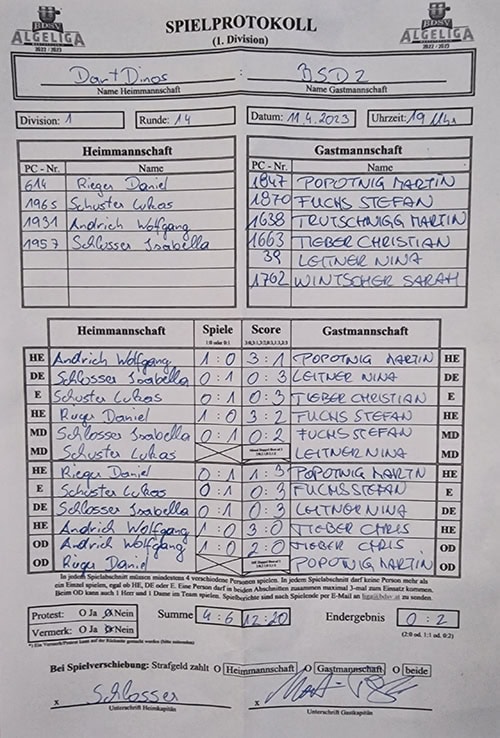 BDSV
ALGELIGA
2022 / 2023
SPIELPROTOKOLL
(1. Division)
BDSV
ALGELIGA
2022 / 2023
Dart Dinos : BSD2
Name Heimmannschaft Name Gastmannschaft
Division: 1 Runde: 14 Datum: 11.4.2023 Uhrzeit: 19 Uhr
Heimmannschaft Gastmannschaft
PC - Nr. Name PC - Nr. Name
614 Rieger Daniel 1847 POPOTNIG MARTIN
1965 Schuster Lukas 1870 FUCHS STEFAN
1931 Andrich Wolfgang 1638 TRUTSCHNIGG MARTIN
1957 Schlosser Isabella 1663 TIEBER CHRISTIAN
39 LEITNER NINA
1762 WINTSCHER SARAH
Heimmannschaft Spiele Score Gastmannschaft
1:0 oder 0:1 3:0,3:1,3:2,0:3,1:3,2:3
HE Andrich Wolfgang 1 : 0 3 : 1 POPOTNIG MARTIN HE
DE Schlosser Isabella 0 : 1 0 : 3 LEITNER NINA DE
E Schuster Lukas 0 : 1 0 : 3 TIEBER CHRISTIAN E
HE Rieger Daniel 1 : 0 3 : 2 FUCHS STEFAN HE
MD Schlosser Isabella 0 : 1 0 : 2 FUCHS STEFAN MD
MD Schuster Lukas LEITNER NINA MD
HE Rieger Daniel 0 : 1 1 : 3 POPOTNIG MARTIN HE
E Schuster Lukas 0 : 1 0 : 3 FUCHS STEFAN E
DE Schlosser Isabella 0 : 1 0 : 3 LEITNER NINA DE
HE Andrich Wolfgang 1 : 0 3 : 0 TIEBER CHRIS HE
OD Andrich Wolfgang 1 : 0 2 : 0 TIEBER CHRIS OD
OD Rieger Daniel POPOTNIG MARTIN OD
In jedem Spielabschnitt müssen mindestens 4 verschiedene Personen spielen. In jedem Spielabschnitt darf keine Person mehr als
ein Einzel spielen, egal ob HE, DE oder E. Eine Person darf in beiden Abschnitten zusammen maximal 3-mal zum Einsatz kommen.
Beim OD kann auch 1 Herr und 1 Dame im Team spielen. Spielberichte sind nach Spielende per E-Mail an liga@bdsv.at zu senden.
Protest: O Ja O Nein Summe 4 : 6 12 : 20 Endergebnis 0 : 2
Vermerk: O Ja O Nein (2:0 od. 1:1 od. 0:2)
*) Ein Vermerk/Protest kann auf der Rückseite gemacht werden (bitte mitsenden)
Bei Spielverschiebung: Strafgeld zahlt O Heimmannschaft O Gastmannschaft O beide
x Schlosser x
Unterschrift Heimkapitän Unterschrift Gastkapitän